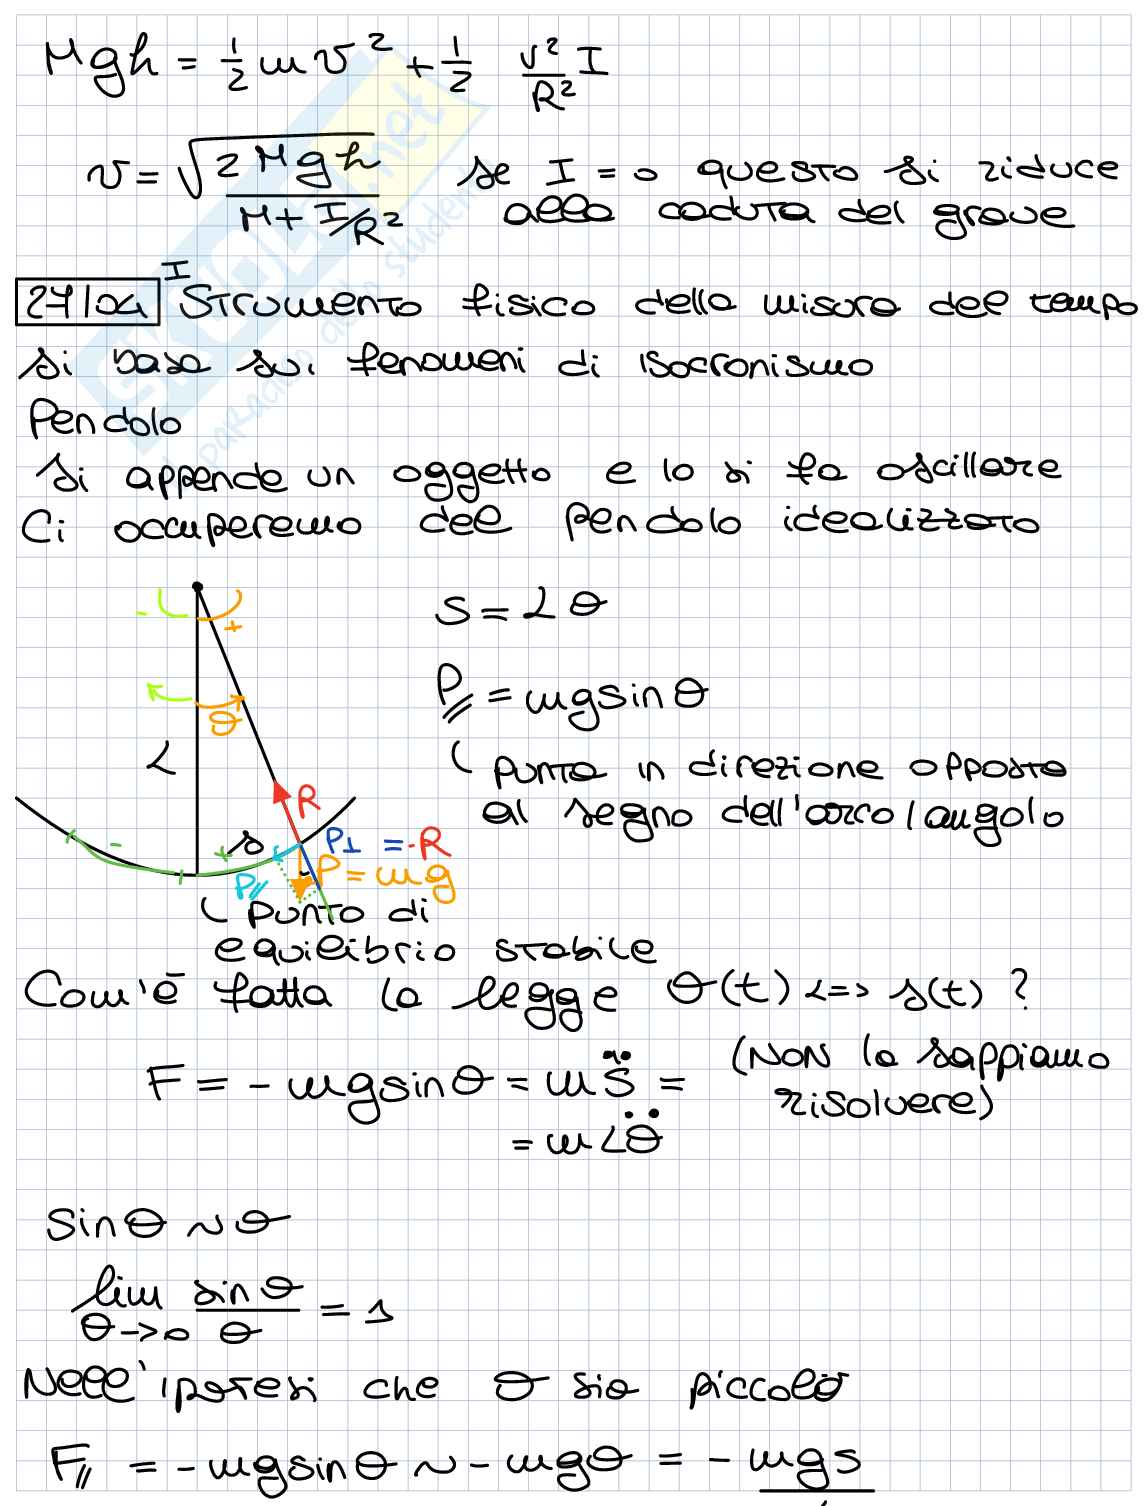 Mgh = 1/2 m v² + 1/2 v²/R² I
v = √2Mgh / M + I/R² se I = 0 questo si riduce
alla caduta del grave
24/04 I Strumento fisico della misura del tempo
si basa sui fenomeni di isocronismo
Pendolo
Si appende un oggetto e lo si fa oscillare
Ci occuperemo del pendolo idealizzato
- +
S = Lθ
θ
P// = mg sin θ
L
punta in direzione opposta
al segno dell'arco/angolo
R
- + s P⊥ = -R
P// P = mg
punto di
equilibrio stabile
Com'è fatta la legge θ(t) <=> s(t) ?
F = - mg sin θ = m s̈ = (NON la sappiamo
risolvere)
= m L θ̈
sin θ ~ θ
lim θ->0 sin θ / θ = 1
Nell'ipotesi che θ sia piccolo
F// = - mg sin θ ~ - mg θ = - mgs
SKUOLA.net
paradiso dello studente